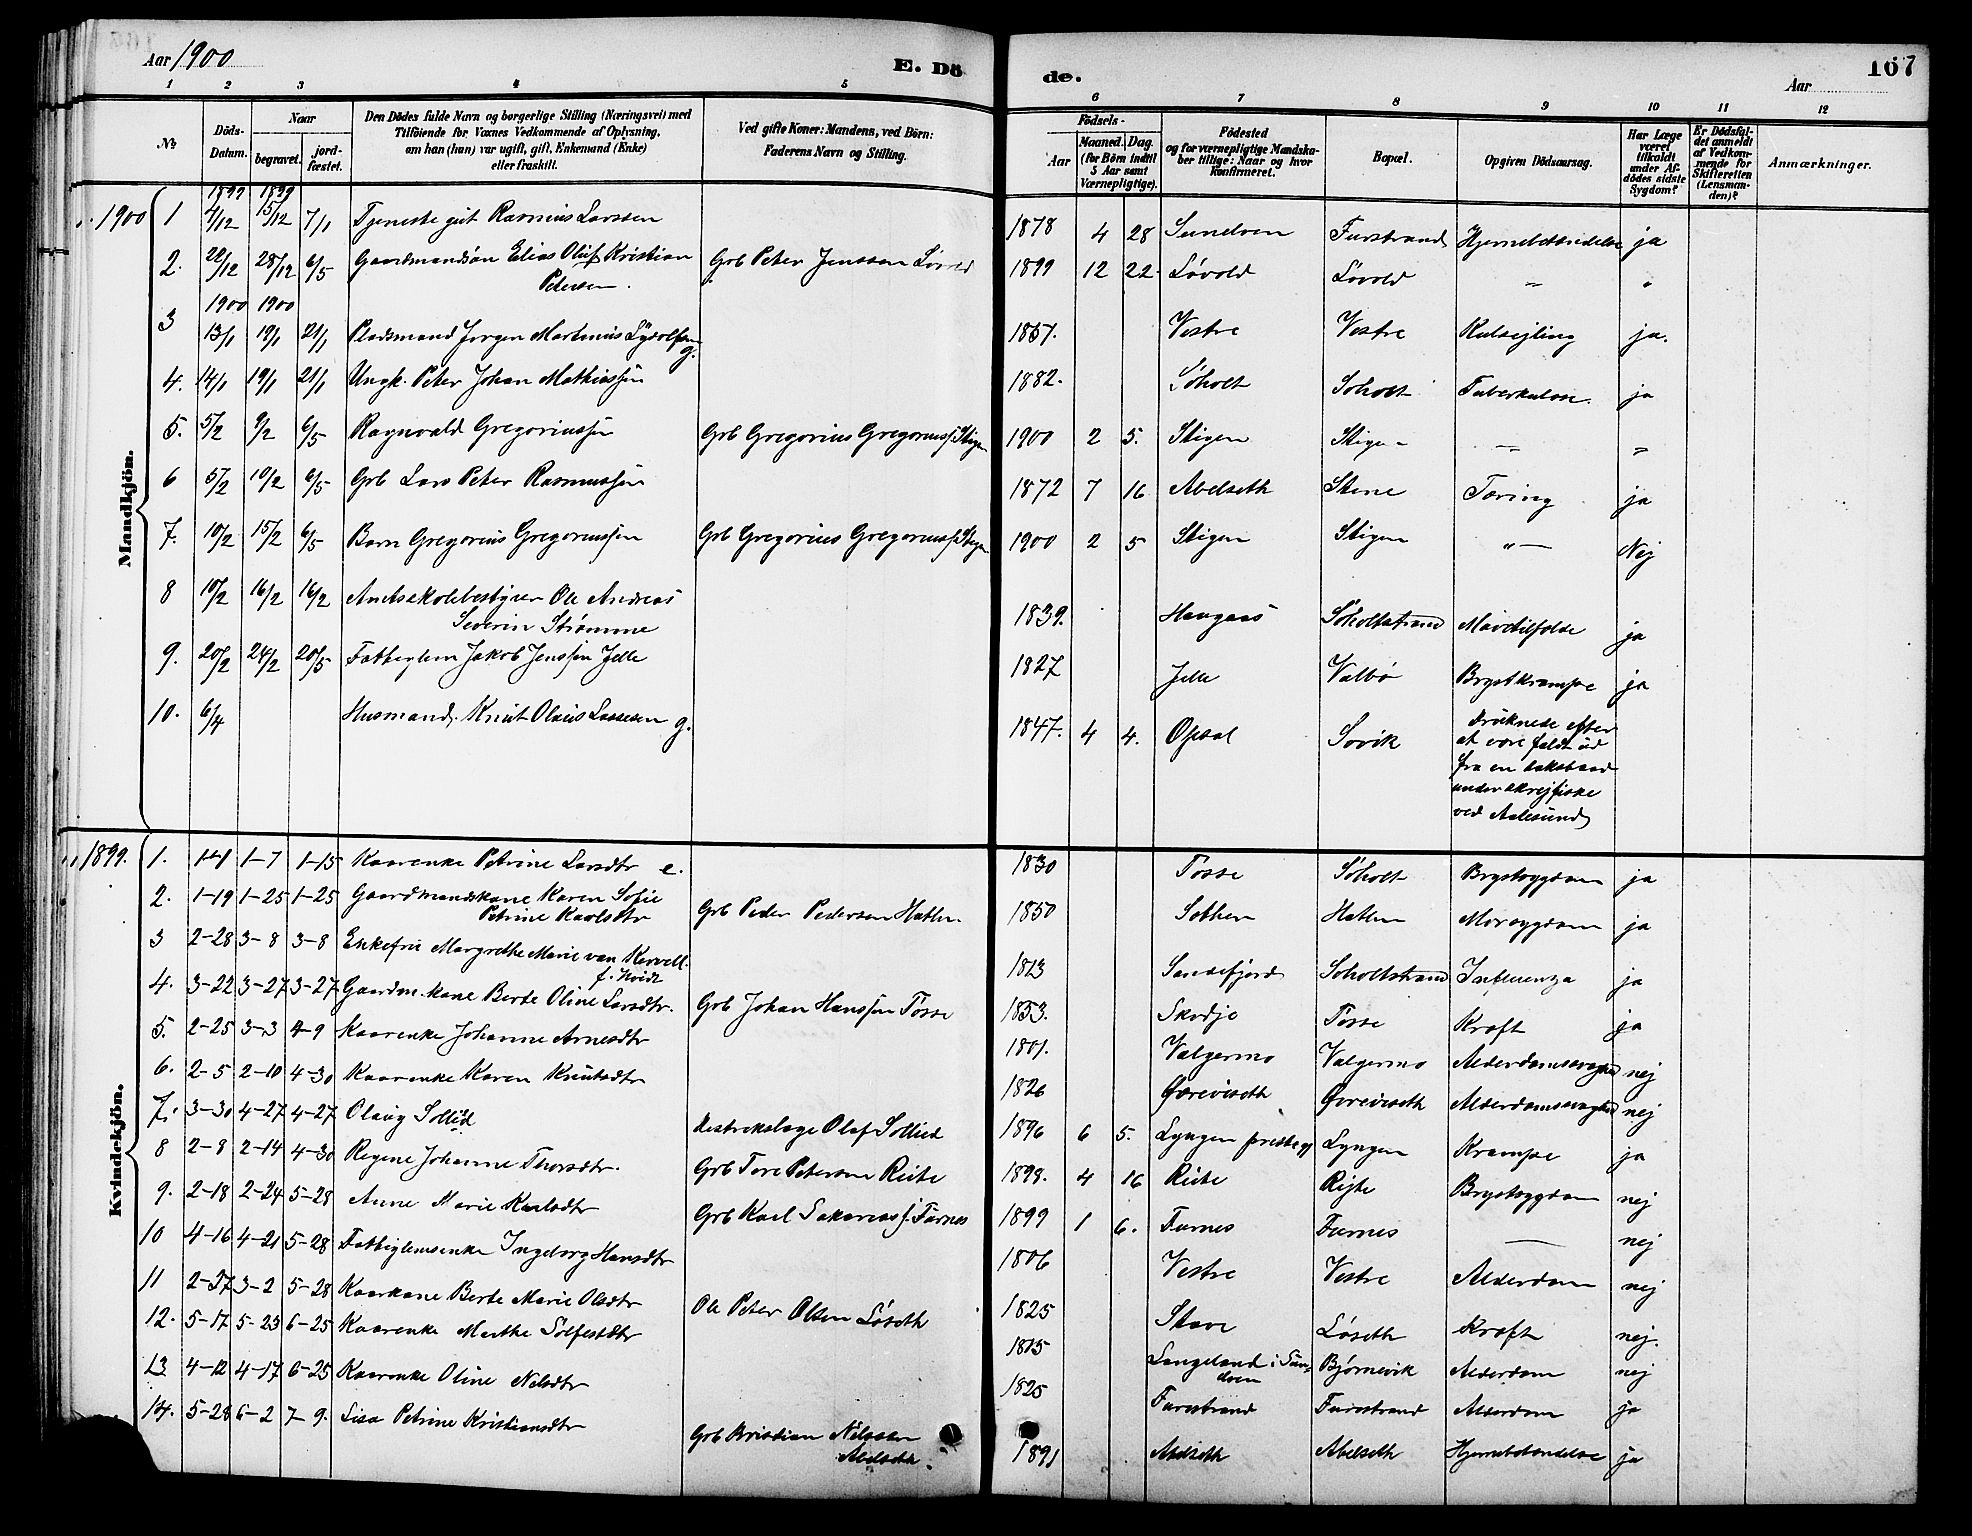 Aar 1900
E. Dö
de.
Aar
167
1 2 3 4 5 6 7 8 9 10 11 12
№
Döds-Datum.
Naar
begravet.
jord-fæstet.
Den Dödes fulde Navn og borgerlige Stilling (Næringsvei) med
Tilföiende for Voxnes Vedkommende af Oplysning,
om han (hun) var ugift, gift, Enkemand (Enke)
eller fraskilt.
Ved gifte Koner: Mandens, ved Börn:
Faderens Navn og Stilling.
Födsels-
Aar
Maaned. Dag.
(for Börn indtil
5 Aar samt
Værnepligtige).
Födested
og for værnepligtige Mandska-
ber tillige: Naar og hvor
konfirmeret.
Bopæl.
Opgiven Dödsaarsag.
Har Læge
været
tilkaldt
under Af-
dödes sidste
Sygdom?
Er Dödsfal-
det anmeldt
af Vedkom-
mende for
Skifteretten
(Lensman-
den)?
Anmærkninger.
Mandkjön.
1899 1899
1900 1 7/12 15/12 7/1 Tjeneste gut Rasmus Larssen 1878 4 28 Sundven Furstrand Hjernebetændelse ja
2. 22/12 28/12 6/5 Gaardmandsön Elias Oluf Kristian Grb Peter Jenssen Løvold 1899 12 22 Løvold Løvold " "
Petersen.
1900 1900
3 13/1 19/1 21/1 Pladsmand Jørgen Martinus Lydolfsen g. 1857. Vestre Vestre Kulsejling ja.
4. 14/1 19/1 21/1 Ungk. Peter Johan Mathiassen 1882. Søholt Søholt Tuberkulose. ja
5. 5/2 9/2 6/5 Ragnvald Gregoriussen Grb Gregorius Gregoriuss. Stigen 1900 2 5. Stigen Stigen — "
6 5/2 10/2 6/5 Grb Lars Peter Rasmussen 1872 7 16 Abelseth Stene Tæring ja
7. 10/2 15/2 6/5 Barn Gregorius Gregoriussen Grb Gregorius Gregoriuss. Stigen 1900 2 5 Stigen Stigen "— Nej
8 10/2 16/2 16/2 Amtsskolebestyrer Ole Andreas 1839. Haugaas Søholtstrand Mavetilfælde ja
Severin Strømme
9. 20/2 24/2 20/5 Fattiglem Jakob Jenssen Jelle 1827 Jelle Valbø Brystkrampe ja
10. 6/4 Husmand. Knut Olaus Lassesen g. 1847. 4 4. Opsal Sovik Druknede efter
at være faldt ud
fra en baad
under skrejfiske
ved Aalesund
Kvindekjön.
1899. 1. 1-1 1-7 1-15 Kaarenke Petrine Larsdtr e. 1830 Tosse Søholt Brystsygdom ja
2. 1-19 1-25 1-25 Gaardmandskone Karen Sofie Grb Peder Pedersen Hatlen. 1850 Solhen Hatlen Mavesygdom ja
Petrine Karlsdtr
3 2-28 3-8 3-8 Enkefru Margrethe Marie van Kervell f. Hvidt 1813 Sandefjord Søholtstrand Influenza ja
4. 3-22 3-27 3-27 Gaardm. kone Berte Oline Larsdtr. Grb Johan Hanssen Tosse 1853. Skodje Tosse Kræft ja
5. 2-25 3-3 4-9 Kaarenke Johanne Arnesdtr 1801. Valgermo Valgermo Alderdomssvaghed nej
6. 2-5 2-10 4-30 Kaarenke Karen Knutsdtr 1826 Gjæreviseth Gjæreviseth Alderdomssvaghed nej
7. 3-30 4-27 4-27 Olaug Sollied Distriktslæge Olaf Sollied 1896 6 5. Lyngen præstegj Lyngen Krampe ja
8 2-8 2-14 4-30 Regine Johanne Thorsdtr. Grb Tore Petersen Reite 1898. 4 16 Reite Rejte Brystsygdom nej
9. 2-18 2-24 5-28 Anne Marie Karlsdtr Grb Karl Sakariass. Furnes 1899 1 6. Furnes Furnes — nej
10 4-16 4-21 5-28 Fattiglemsenke Ingeborg Hansdtr 1806 Vestre Vestre Alderdom nej
11 2-27 3-2 5-28 Kaarkone Berte Marie Olsdtr Ole Peter Olsen Løseth 1825 Stave Løseth Kræft nej.
12. 5-17 5-23 6-25 Kaarenke Marthe Sølfestdtr 1815 Langeland i Sun- Bjørnevik Alderdom nej
dven
13 4-12 4-17 6-25 Kaarenke Oline Nilsdtr 1825 Furstrand Furstrand Alderdom ja
14. 5-28 6-2 7-9. Lisa Petrine Kristiansdtr Grb Kristian Nilssen 1891 Abelseth Abelseth Hjernebetændelse ja
Abelseth.